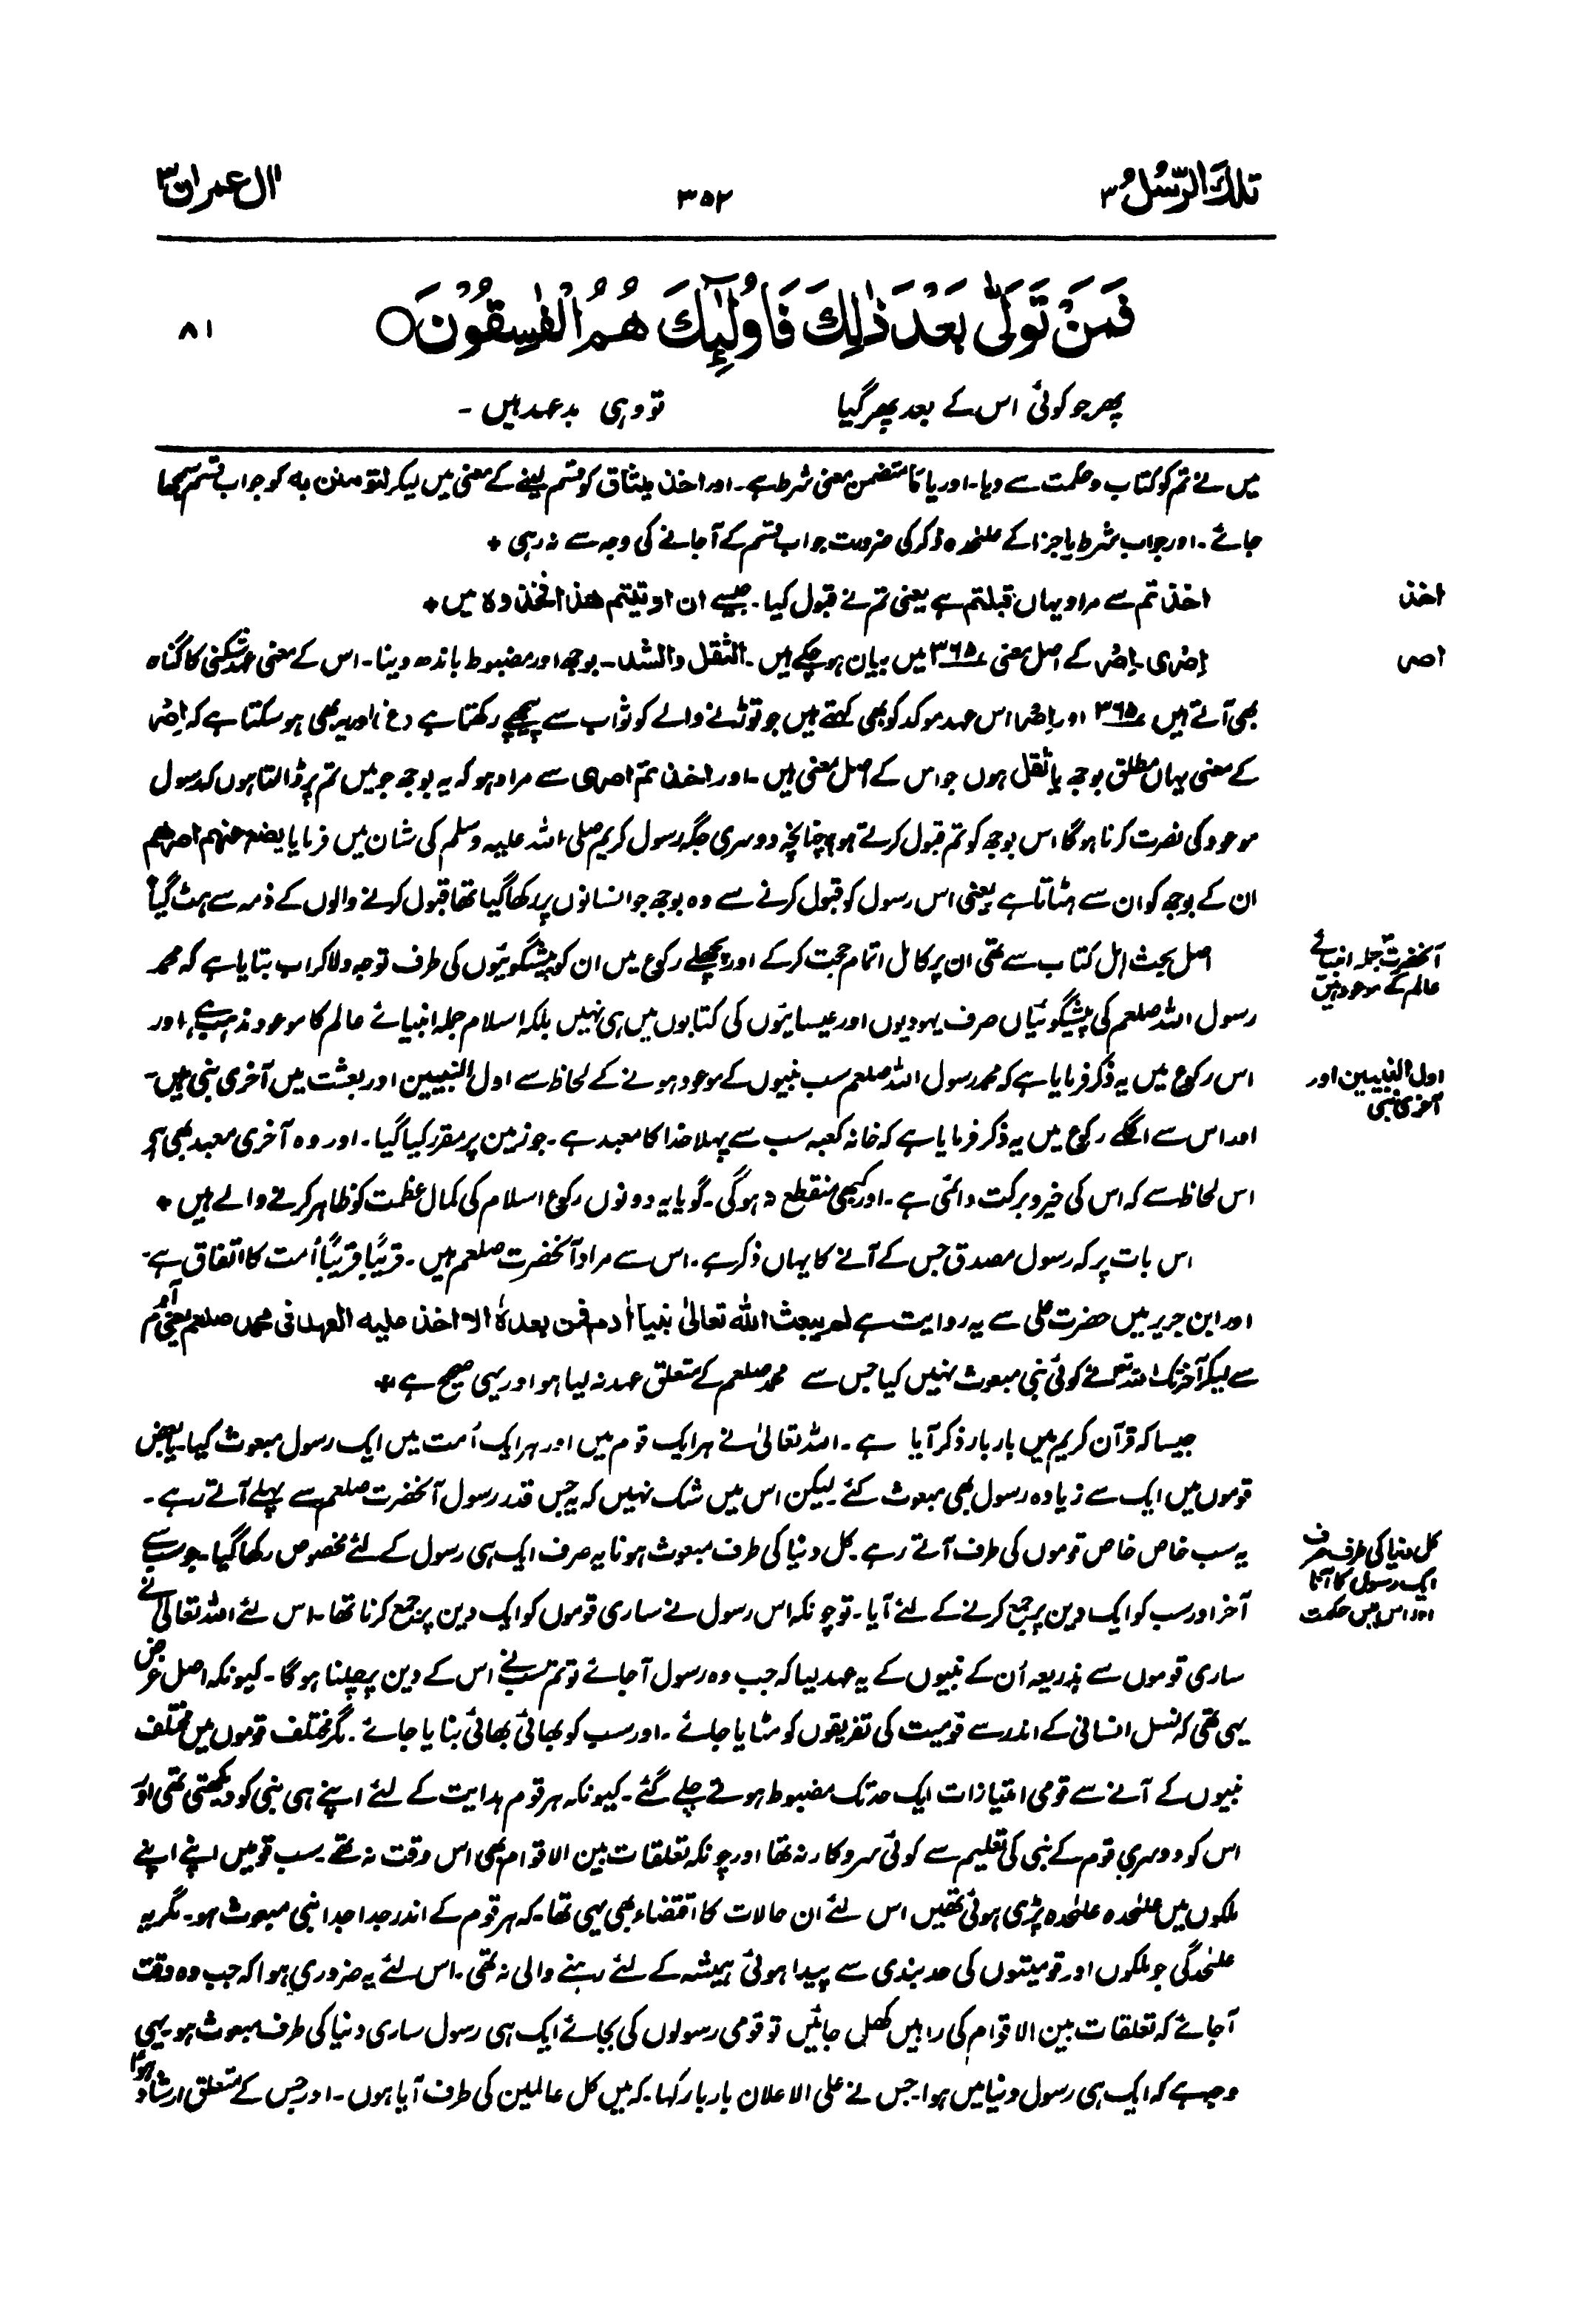 تلك الرسل ۳
۳۵۲
اٰل عمران ۳
فَمَنْ تَوَلّٰى بَعْدَ ذٰلِكَ فَاُولٰٓئِكَ هُمُ الْفٰسِقُوْنَ○
۸۱
پھر جو کوئی اس کے بعد پھر گیا تو وہی بدعہد ہیں ۔
میں نے تم کو کتاب و حکمت سے دیا۔ اور یا مَا متضمن معنی شرط ہے۔ اور اخذ میثاق کو قسم لینے کے معنی میں لیکر لتؤمنن به کو جواب قسم سمجھا
جائے۔ اور جواب شرط یا جزا کے علیٰحدہ ذکر کی ضرورت جواب قسم کے آجانے کی وجہ سے نہ رہی ٭
اخذ
اخذتم سے مراد یہاں قبلتم ہے یعنی تم نے قبول کیا۔ جیسے ان اوتیتم هذا فخذوه میں ٭
اصر
اِصْری۔ اِصْر کے اصل معنی ۳۶۵ میں بیان ہو چکے ہیں ۔ الثقل والشد ۔ بوجھ اور مضبوط باندھ دینا۔ اس کے معنی عہد شکنی کا گناہ
بھی آتے ہیں ۳۶۵ اور اِصْر اس عہد موکد کو بھی کہتے ہیں جو توڑنے والے کو ثواب سے پیچھے رکھتا ہے (غ) اور یہ بھی ہو سکتا ہے کہ اِصْر
کے معنی یہاں مطلق بوجھ یا ثقل ہوں جو اس کے اصل معنی ہیں ۔ اور اخذتم اصری سے مراد ہو کہ یہ بوجھ جو میں تم پر ڈالتا ہوں کہ رسول
موعود کی نصرت کرنا ہوگا اس بوجھ کو تم قبول کرتے ہو چنانچہ دوسری جگہ رسول کریم صلی اللہ علیہ وسلم کی شان میں فرمایا یضع عنهم اصرهم
ان کے بوجھ کو ان سے ہٹاتا ہے یعنی اس رسول کو قبول کرنے سے وہ بوجھ جو انسانوں پر رکھا گیا تھا قبول کرنے والوں کے ذمہ سے ہٹ گیا
آنحضرتؐ جملہ انبیائے
عالم کے موعود ہیں
اصل بحث اہل کتاب سے تھی ان پر کامل اتمام حجت کرکے اور پچھلے رکوع میں ان کو پیشگوئیوں کی طرف توجہ دلا کر اب بتایا ہے کہ محمد
رسول اللہ صلعم کی پیشگوئیاں صرف یہودیوں اور عیسائیوں کی کتابوں میں ہی نہیں بلکہ اسلام جملہ انبیائے عالم کا موعود مذہب ہے، اور
اول النبیین اور
آخری نبی
اس رکوع میں یہ ذکر فرمایا ہے کہ محمد رسول اللہ صلعم سب نبیوں کے موعود ہونے کے لحاظ سے اول النبیین اور بعثت میں آخری نبی ہیں۔
اور اس سے اگلے رکوع میں یہ ذکر فرمایا ہے کہ خانہ کعبہ سب سے پہلا خدا کا معبد ہے۔ جو زمین پر مقرر کیا گیا۔ اور وہ آخری معبد بھی ہے
اس لحاظ سے کہ اس کی خیر و برکت دائمی ہے ۔ اور کبھی منقطع نہ ہوگی۔ گویا یہ دونوں رکوع اسلام کی کمال عظمت کو ظاہر کرنے والے ہیں ٭
اس بات پر کہ رسول مصدق جس کے آنے کا یہاں ذکر ہے۔ اس سے مراد آنحضرت صلعم ہیں ۔ قریبًا قریبًا اُمت کا اتفاق ہے۔
اور ابن جریر میں حضرت علی سے یہ روایت ہے لم یبعث الله تعالیٰ نبیا اٰدم فمن بعدهٗ الا اخذ علیه العهد فی محمد صلعم یعنی آدم
سے لیکر آخر تک اللہ تعالےٰ نے کوئی نبی مبعوث نہیں کیا جس سے محمد صلعم کے متعلق عہد نہ لیا ہو اور یہی صحیح ہے ٭
جیسا کہ قرآن کریم میں بار بار ذکر آیا ہے ۔ اللہ تعالیٰ نے ہر ایک قوم میں اور ہر ایک اُمت میں ایک رسول مبعوث کیا۔ یا بعض
قوموں میں ایک سے زیادہ رسول بھی مبعوث کئے لیکن اس میں شک نہیں کہ یہ جس قدر رسول آنحضرت صلعم سے پہلے آتے رہے ۔
کل دنیا کی طرف صرف
ایک رسول کا آنا
اور اس میں حکمت
یہ سب خاص خاص قوموں کی طرف آتے رہے۔ کل دنیا کی طرف مبعوث ہونا یہ صرف ایک ہی رسول کے لئے مخصوص رکھا گیا۔ جو سب سے
آخر اور سب کو ایک دین پر جمع کرنے کے لئے آیا ۔ تو چونکہ اس رسول نے ساری قوموں کو ایک دین پر جمع کرنا تھا۔ اس لئے اللہ تعالیٰ نے
ساری قوموں سے بذریعہ اُن کے نبیوں کے یہ عہد لیا کہ جب وہ رسول آجائے تو تم سب نے اس کے دین پر چلنا ہوگا ۔ کیونکہ اصل غرض
یہی تھی کہ نسل انسانی کے اندر سے قومیت کی تفریقوں کو مٹایا جائے ۔ اور سب کو بھائی بھائی بنایا جائے ۔ مگر مختلف قوموں میں مختلف
نبیوں کے آنے سے قومی امتیازات ایک حد تک مضبوط ہوتے چلے گئے ۔ کیونکہ ہر قوم ہدایت کے لئے اپنے ہی نبی کو دیکھتی تھی اور
اس کو دوسری قوم کے نبی کی تعلیم سے کوئی سروکار نہ تھا اور چونکہ تعلقات بین الاقوام بھی اس وقت نہ تھے۔ سب قومیں اپنے اپنے
ملکوں میں علیٰحدہ علیٰحدہ پڑی ہوئی تھیں اس لئے ان حالات کا اقتضاء بھی یہی تھا۔ کہ ہر قوم کے اندر جدا جدا نبی مبعوث ہو۔ مگر یہ
علیٰحدگی جو ملکوں اور قومیتوں کی حد بندی سے پیدا ہوئی ہمیشہ کے لئے رہنے والی نہ تھی۔ اس لئے یہ ضروری ہوا کہ جب وہ وقت
آجائے کہ تعلقات بین الاقوام کی راہیں کھل جائیں تو قومی رسولوں کی بجائے ایک ہی رسول ساری دنیا کی طرف مبعوث ہو۔ یہی
وجہ ہے کہ ایک ہی رسول دنیا میں ہوا۔ جس نے علی الاعلان بار بار کہا ۔ کہ میں کل عالمین کی طرف آیا ہوں ۔ اور جس کے متعلق ارشاد ہوا